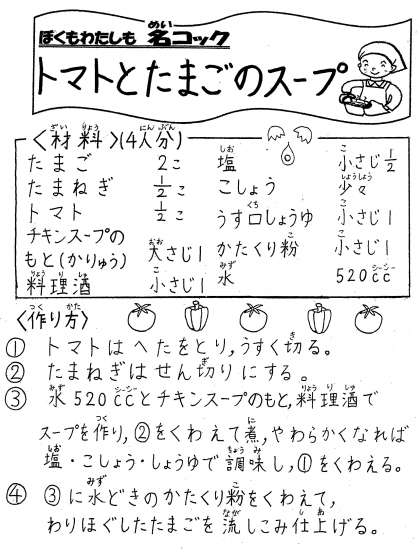 ぼくもわたしも 名コック
トマトとたまごのスープ
〈材料〉(4人分)
たまご 2コ
たまねぎ 1/2コ
トマト 1/2コ
チキンスープの
もと(かりゅう) 大さじ1
料理酒 小さじ1
塩 小さじ1/2
こしょう 少々
うす口しょうゆ 小さじ1
かたくり粉 小さじ1
水 520cc
〈作り方〉
① トマトはへたをとり,うすく切る。
② たまねぎはせん切りにする。
③ 水520ccとチキンスープのもと,料理酒で
スープを作り,②をくわえて煮,やわらかくなれば
塩・こしょう・しょうゆで調味し,①をくわえる。
④ ③に水どきのかたくり粉をくわえて,
わりほぐしたたまごを流しこみ仕上げる。